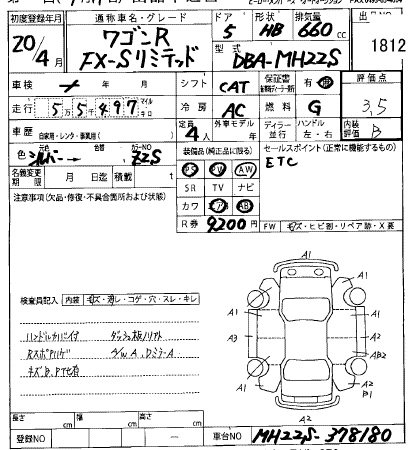 初度登録年月 通称車名・グレード ドア 形状 排気量 出
20/4 ワゴンR FX-Sリミテッド 5 HB 660cc 1812
型式 DBA-MH22S
車検 シフト CAT 保証書 有 評価点
走行 5 5 4 9 7 マイル キロ 冷房 AC 燃料 G 3,5
車歴 自家用・レンタ・事業用( ) 定員 4人 外車モデル ディーラー 並行 ハンドル 左・右 内装評価 B
色 シルバー 色替 カラーNO Z2S 装備品(純正品に限る) セールスポイント(正常に機能するもの)
PS PW AW ETC
名義変更期限 月 日迄 積載 t SR TV ナビ
注意事項(欠品・修復・不具合箇所および状態) カワ エアB AB
R券 9200円 FW キズ・ヒビ割・リペア跡・X要
A1
A1 A1
検査員記入 内装 キズ・汚レ・コゲ・穴・スレ・キレ A1 A1
ハンドルカバー付 ダッシュ板ノリアト A3 A2
A2 AB2
A2 A2
B1
A2
長さ cm 幅 cm 高さ cm
登録NO ー 車台NO MH22S-378180